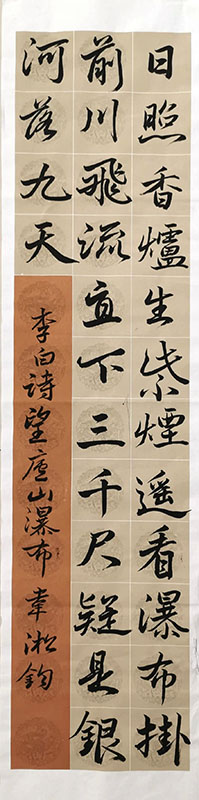 日照香爐生紫煙遥看瀑布掛
前川飛流直下三千尺疑是銀
河落九天
李白诗望庐山瀑布 韋淞鈞